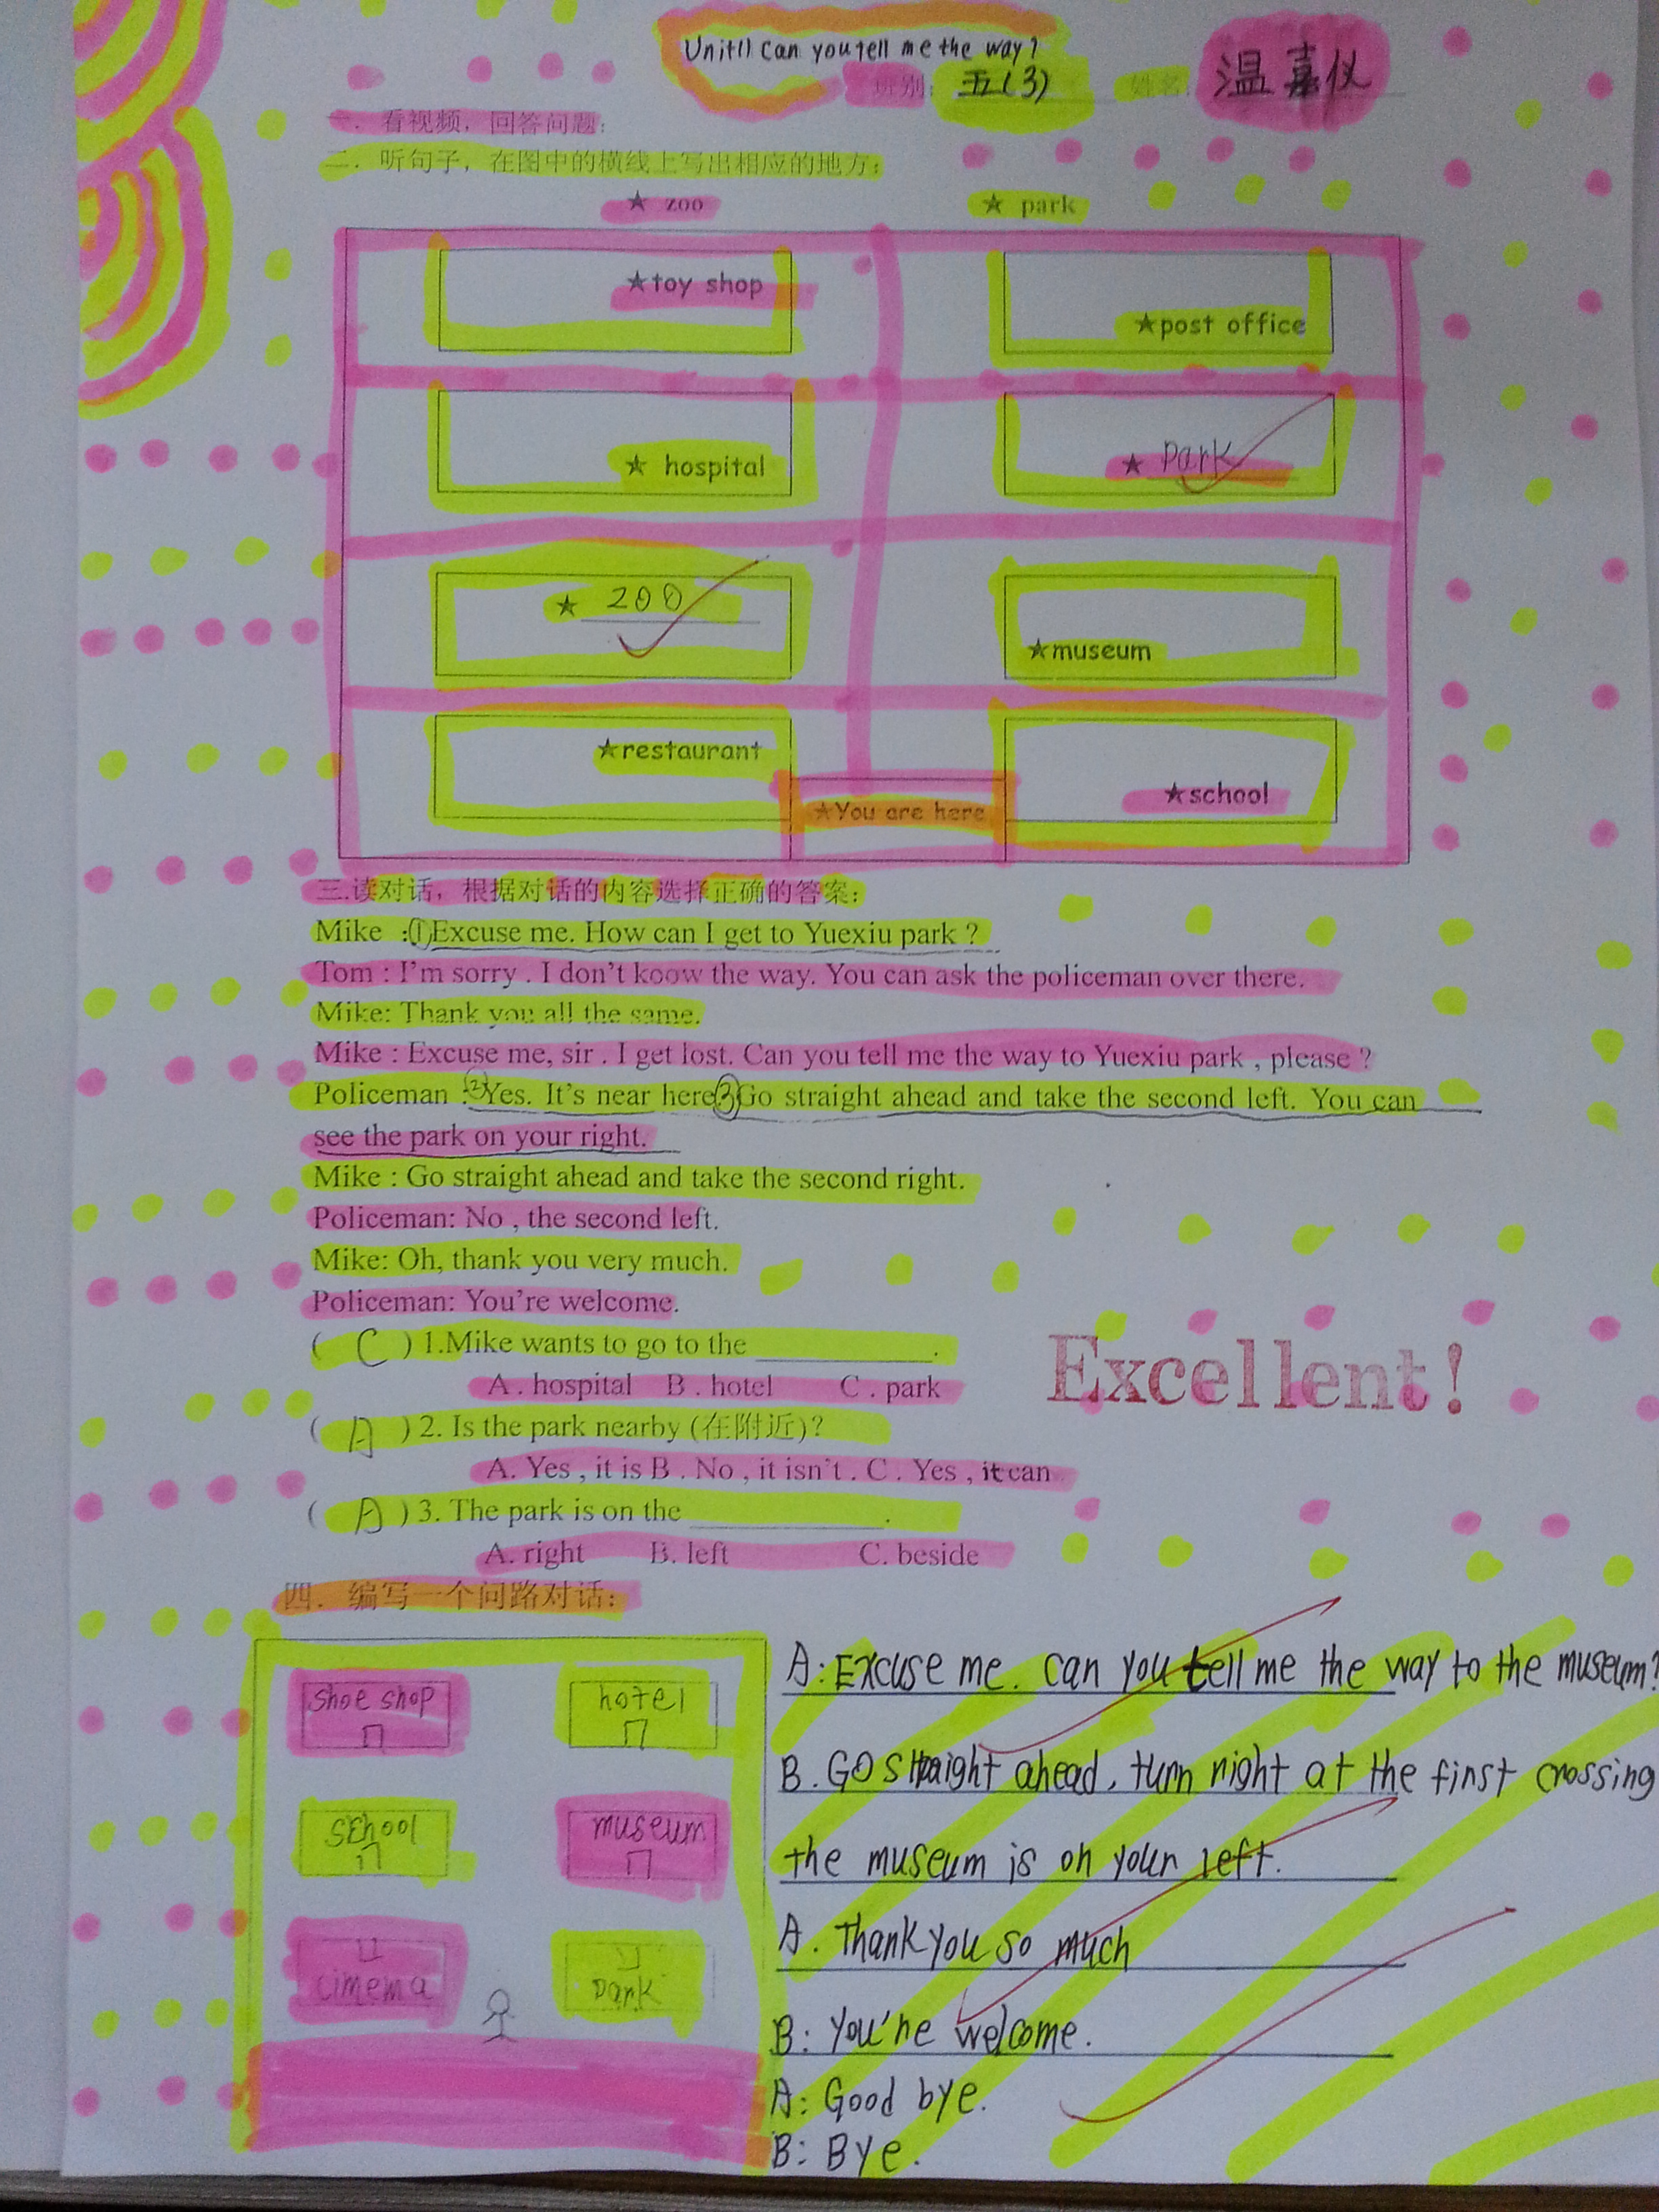 Unit11 Can you tell me the way?
班别: 五(3) 姓名: 温嘉仪
一. 看视频，回答问题:
二. 听句子，在图中的横线上写出相应的地方:
★ zoo ★ park
★toy shop
★post office
★ hospital
★ park
★ zoo
★museum
★restaurant
★school
★You are here
三.读对话，根据对话的内容选择正确的答案:
Mike :①Excuse me. How can I get to Yuexiu park ?
Tom : I'm sorry . I don't koow the way. You can ask the policeman over there.
Mike: Thank you all the same.
Mike : Excuse me, sir . I get lost. Can you tell me the way to Yuexiu park , please ?
Policeman :②Yes. It's near here③Go straight ahead and take the second left. You can
see the park on your right.
Mike : Go straight ahead and take the second right.
Policeman: No , the second left.
Mike: Oh, thank you very much.
Policeman: You're welcome.
( C ) 1.Mike wants to go to the ___________.
A . hospital B . hotel C . park
( A ) 2. Is the park nearby (在附近)?
A. Yes , it is B . No , it isn't . C . Yes , it can
( A ) 3. The park is on the ____________.
A. right B. left C. beside
Excellent!
四. 编写一个问路对话:
shoe shop
hotel
school
museum
cimema
park
A: Excuse me. Can you tell me the way to the museum?
B. Go straight ahead, turn right at the first crossing
the museum is on your left.
A. Thank you so much
B: You're welcome.
A: Good bye.
B: Bye.